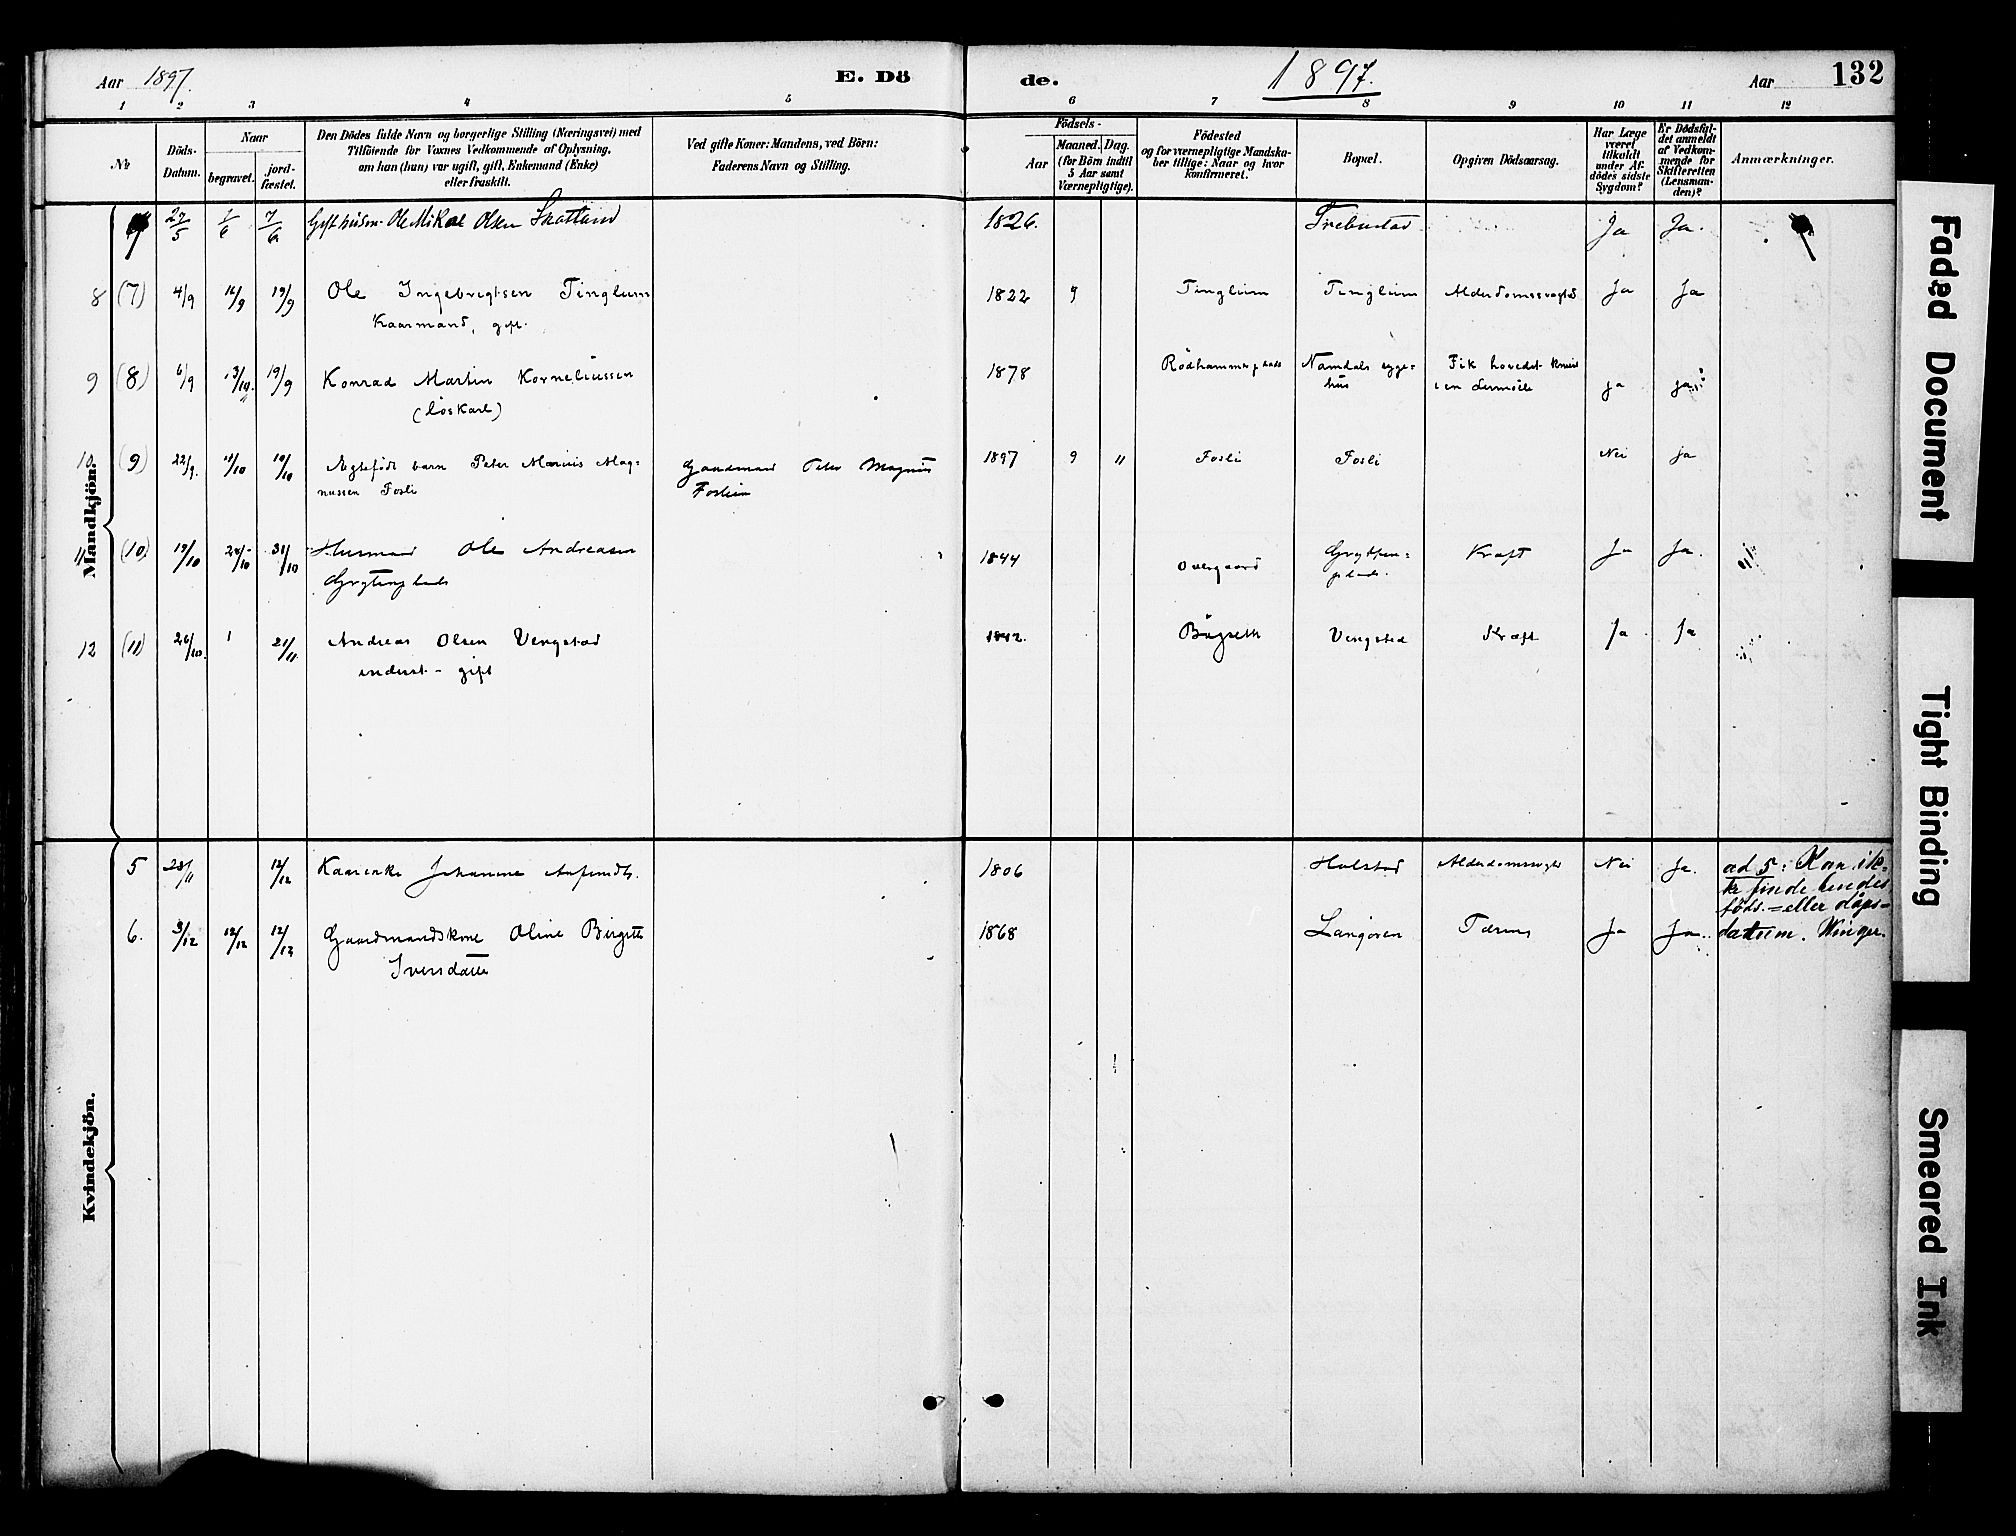 Aar 1897.
E. Dö
de.
1897.
Aar
132
1 2 3 4 5 6 7 8 9 10 11 12
No
Döds-
Datum.
Naar
begravet.
jord-
fæstet.
Den Dödes fulde Navn og borgerlige Stilling (Næringsvei) med
Tilföiende for Voxnes Vedkommende af Oplysning,
om han (hun) var ugift, gift, Enkemand (Enke)
eller fraskilt.
Ved gifte Koner: Mandens, ved Börn:
Faderens Navn og Stilling.
Födsels-
Aar
Maaned.
Dag.
(for Börn indtil
5 Aar samt
Værnepligtige).
Födested
og for værnepligtige Mandska-
ber tillige: Naar og hvor
konfirmeret.
Bopæl.
Opgiven Dödsaarsag.
Har Læge
været
tilkaldt
under Af-
dödes sidste
Sygdom?
Er Dödsfal-
det anmeldt
af Vedkom-
mende for
Skifteretten
(Lensman-
den)?
Anmærkninger.
Mandkjön.
27/5 1/6 7/6 Gift husm. Ole Mikal Olsen Skatland 1826. Trebustad Ja Ja.
8 (7) 4/9 16/9 19/9 Ole Ingebrigtsen Tinglum 1822 9 Tinglum Tinglum Alderdomssvaghd Ja Ja
Kaarmand, gift.
9 (8) 6/9 13/9. 19/9 Konrad Martin Korneliussen 1878 Rödhammerplads Namdals syge-
hus Fik hovedet knust
i en dermölle ja ja
(löskarl)
10 (9) 22/9. 11/10 10/10 Ægtefödt barn Peter Marius Mag-
nussen Fosli Gaardmand Peter Magnus
Foslien 1897 9 " Fosli Fosli Nei ja
11 (10) 19/10 24/10 31/10 Husmand Ole Andreasen
Grytenplads 1844 Overgaard Grytten-
plads. Kræft Ja Ja.
12 (11) 26/10. 1 21/11 Andreas Olsen Vengstad
inderst - gift 1842. Bügseth Vengstad Kræft Ja Ja
Kvindekjön.
5 28/11 12/12 Kaarenke Johanna Anfindts. 1806 Halstad Alderdomssvaghd Nei Ja.
ad 5: Kan ik-
ke finde hendes
föds.=eller dåps=
datum. Winger.
6. 3/12 12/12 12/12 Gaardmandskone Oline Birgitte
Iversdatter 1868 Langören Tæring Ja Ja.
Faded Document
Tight Binding
Smeared Ink